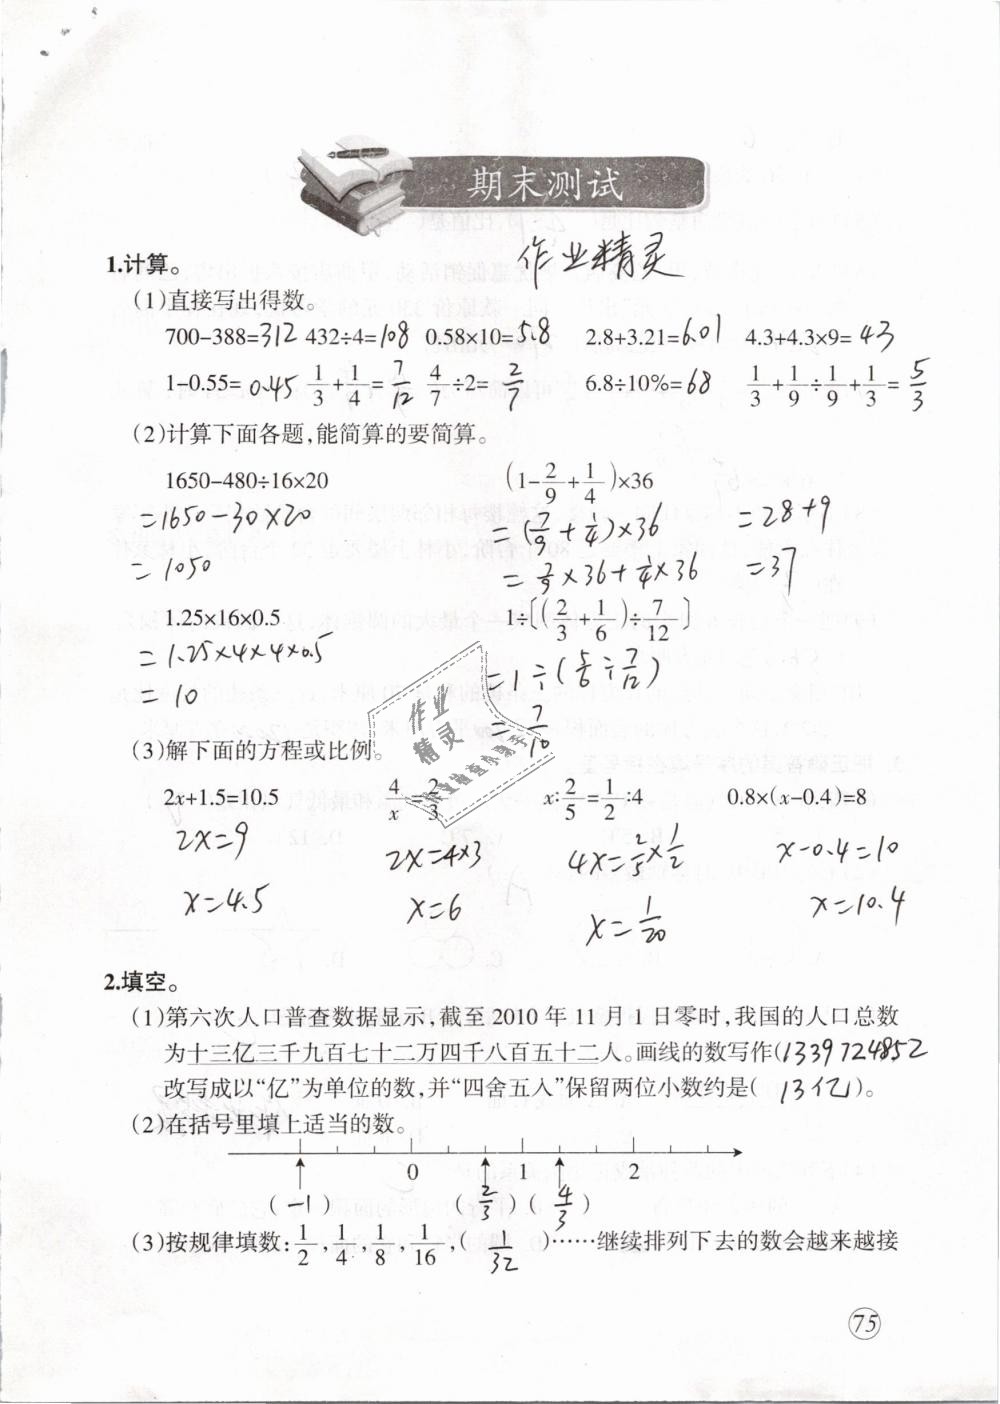 期末测试
作业精灵
1.计算。
(1)直接写出得数。
700-388=312 432÷4=108 0.58×10=5.8 2.8+3.21=6.01 4.3+4.3×9=43
1-0.55=0.45 1/3+1/4=7/12 4/7÷2=2/7 6.8÷10%=68 1/3+1/9÷1/9+1/3=5/3
(2)计算下面各题,能简算的要简算。
1650-480÷16×20 (1-2/9+1/4)×36
=1650-30×20 =(7/9+1/4)×36 =28+9
=1050 =7/9×36+1/4×36 =37
1.25×16×0.5 1÷[(2/3+1/6)÷7/12]
=1.25×4×4×0.5 =1÷(5/6÷7/12)
=10 7/10
作业
精灵
(3)解下面的方程或比例。
2x+1.5=10.5 4/x=2/3 x:2/5=1/2:4 0.8×(x-0.4)=8
2x=9 2x=4×3 4x=2/5×1/2 x-0.4=10
x=4.5 x=6 x=1/20 x=10.4
2.填空。
(1)第六次人口普查数据显示,截至2010年11月1日零时,我国的人口总数
为十三亿三千九百七十二万四千八百五十二人。画线的数写作(1339724852
改写成以“亿”为单位的数,并“四舍五入”保留两位小数约是( 13亿 )。
(2)在括号里填上适当的数。
0 1 2
(-1) (2/3) (4/3)
(3)按规律填数:1/2,1/4,1/8,1/16,(1/32)……继续排列下去的数会越来越接
75